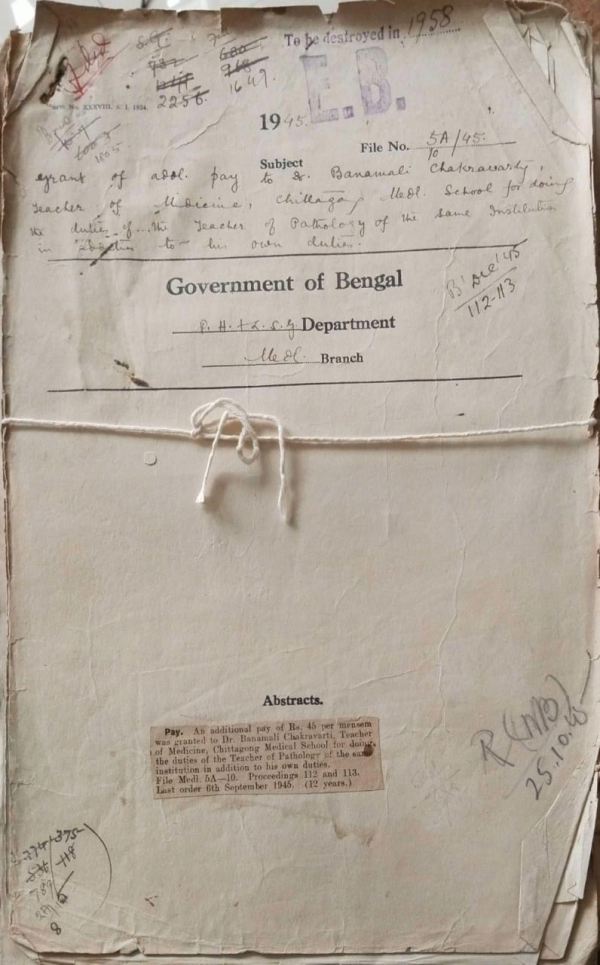 To be destroyed in 1958
E.B.
680
968
2256.
1649.
1945.
File No. 5A/45.
10
Subject
grant of adol. pay to Dr. Banamali Chakravarty,
Teacher of Medicine, Chittagong Medl. School for doing
the duties of the Teacher of Pathology of the same Institution
in addition to his own duties.
Government of Bengal
P. H. & L. S. G Department
Medl. Branch
B' Dec '45
112-113
Abstracts.
Pay. An additional pay of Rs. 45 per mensem
was granted to Dr. Banamali Chakravarti, Teacher
of Medicine, Chittagong Medical School for doing
the duties of the Teacher of Pathology of the same
institution in addition to his own duties.
File Medl. 5A—10. Proceedings 112 and 113.
Last order 6th September 1945. (12 years.)
25.10.45
375
118
8